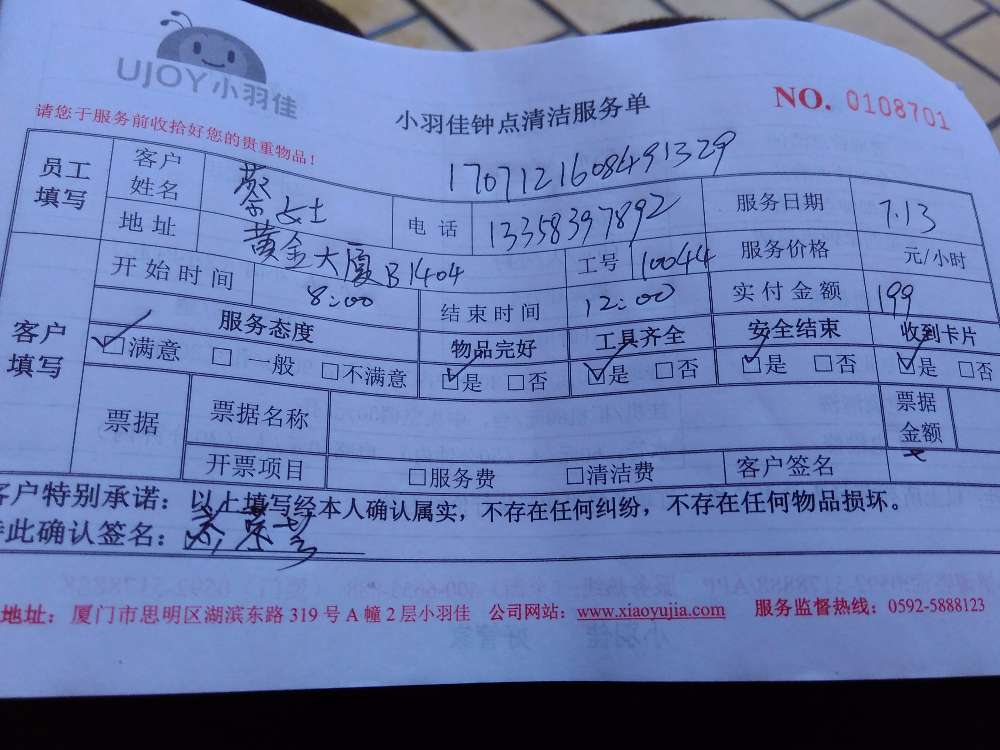 UJOY小羽佳
小羽佳钟点清洁服务单
NO. 0108701
请您于服务前收拾好您的贵重物品！
1707121608491329
员工填写 客户姓名 蔡女士 电话 13358397892 服务日期 7.13
地址 黄金大厦B1404 工号 10044 服务价格 元/小时
客户填写 开始时间 8:00 结束时间 12:00 实付金额 199
服务态度 物品完好 工具齐全 安全结束 收到卡片
☑满意 □一般 □不满意 ☑是 □否 ☑是 □否 ☑是 □否 ☑是 □否
票据 票据名称 票据金额
开票项目 □服务费 □清洁费 客户签名
客户特别承诺：以上填写经本人确认属实，不存在任何纠纷，不存在任何物品损坏。
此确认签名：
地址：厦门市思明区湖滨东路 319 号 A 幢 2 层小羽佳 公司网站：www.xiaoyujia.com 服务监督热线：0592-5888123